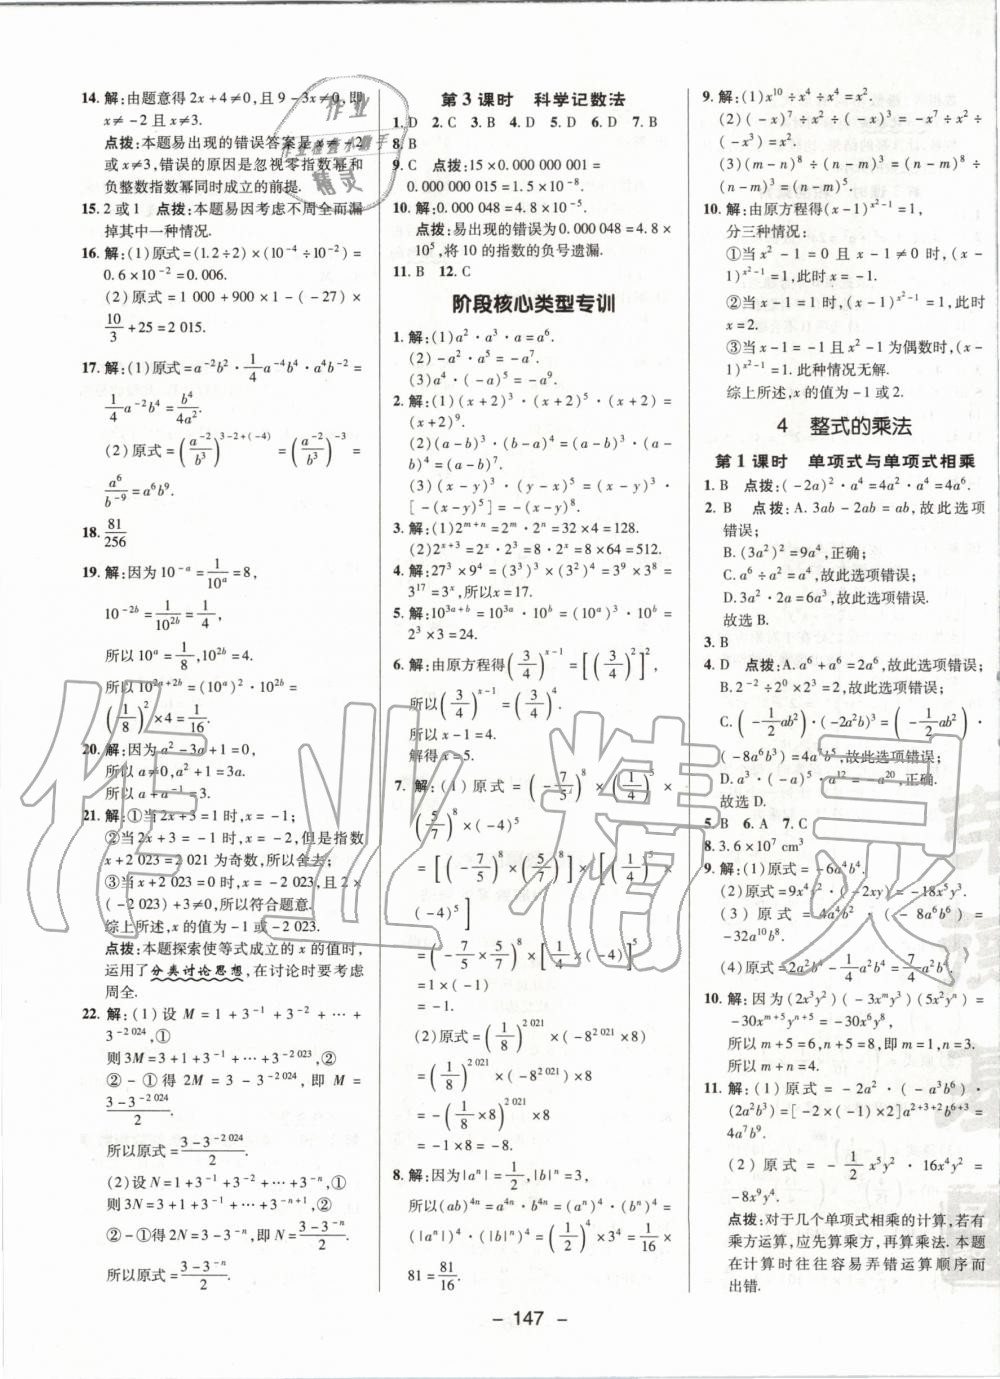 14. 解:由题意得2x+4≠0,且9-3x≠0,即
x≠-2且x≠3.
点拨:本题易出现的错误答案是x≠-2
或x≠3,错误的原因是忽视零指数幂和
负整数指数幂同时成立的前提.
15. 2或1 点拨:本题易因考虑不周全而漏
掉其中一种情况.
16. 解:(1)原式=(1.2÷2)×(10⁻⁴÷10⁻²)=
0.6×10⁻²=0.006.
(2)原式=1 000+900×1-(-27)×
10/3+25=2 015.
17. 解:(1)原式=a⁻²b²·1/4a⁻⁴b⁴·a⁴b⁻²=
1/4a⁻²b⁴=b⁴/4a².
(2)原式=(a⁻²/b³)³⁻²⁺⁽⁻⁴⁾=(a⁻²/b³)⁻³=
a⁶/b⁻⁹=a⁶b⁹.
18. 81/256
19. 解:因为10⁻ᵃ=1/10ᵃ=8,
10⁻²ᵇ=1/10²ᵇ=1/4,
所以10ᵃ=1/8,10²ᵇ=4.
所以10²ᵃ⁺²ᵇ=(10ᵃ)²·10²ᵇ=
(1/8)²×4=1/16.
20. 解:因为a²-3a+1=0,
所以a≠0,a²+1=3a.
所以a+a⁻¹=3.
21. 解:①当2x+3=1时,x=-1;
②当2x+3=-1时,x=-2,但是指数
x+2 023=2 021为奇数,所以舍去;
③当x+2 023=0时,x=-2 023,2×
(-2 023)+3≠0,所以符合题意.
综上所述,x的值为-1或-2 023.
点拨:本题探索使等式成立的x的值时,
运用了分类讨论思想,在讨论时要考虑
周全.
22. 解:(1)设M=1+3⁻¹+3⁻²+…+
3⁻²⁰²⁴,①
则3M=3+1+3⁻¹+…+3⁻²⁰²³,②
②-①得2M=3-3⁻²⁰²⁴,即M=
(3-3⁻²⁰²⁴)/2.
所以原式=(3-3⁻²⁰²⁴)/2.
(2)设N=1+3⁻¹+3⁻²+…+3⁻ⁿ,①
3N=3+1+3⁻¹+…+3⁻ⁿ⁺¹,②
②-①得2N=3-3⁻ⁿ,即N=(3-3⁻ⁿ)/2.
所以原式=(3-3⁻ⁿ)/2.
第3课时 科学记数法
1. D 2. C 3. B 4. D 5. D 6. D 7. B
8. B
9. C 点拨:15×0.000 000 001=
0.000 000 015=1.5×10⁻⁸.
10. 解:0.000 048=4.8×10⁻⁵.
点拨:易出现的错误为0.000 048=4.8×
10⁵,将10的指数的负号遗漏.
11. B 12. C
阶段核心类型专训
1. 解:(1)a²·a³·a=a⁶.
(2)-a²·a⁵=-a⁷.
(3)a⁴·(-a)⁵=-a⁹.
2. 解:(1)(x+2)³·(x+2)⁵·(x+2)=
(x+2)⁹.
(2)(a-b)³·(b-a)⁴=(a-b)³·(a-
b)⁴=(a-b)⁷.
(3)(x-y)³·(y-x)⁵=(x-y)³·
[-(x-y)⁵]=-(x-y)⁸.
3. 解:(1)2ᵐ⁺ⁿ=2ᵐ·2ⁿ=32×4=128.
(2)2ˣ⁺³=2ˣ·2³=8·2ˣ=8×64=512.
4. 解:27³×9⁴=(3³)³×(3²)⁴=3⁹×3⁸=
3¹⁷=3ˣ,所以x=17.
5. 解:10³ᵃ⁺ᵇ=10³ᵃ·10ᵇ=(10ᵃ)³·10ᵇ=
2³×3=24.
6. 解:由原方程得(3/4)ˣ⁻¹=[(3/4)²]²,
所以(3/4)ˣ⁻¹=(3/4)⁴.
所以x-1=4.
解得x=5.
7. 解:(1)原式=(-7/5)⁸×(1/4)⁵×
(5/7)⁸×(-4)⁵
=[(-7/5)⁸×(5/7)⁸]×[(1/4)⁵×
(-4)⁵]
=(-7/5×5/7)⁸×[1/4×(-4)]⁵
=1×(-1)
=-1.
(2)原式=(1/8)²⁰²¹×(-8²⁰²¹×8)
=(1/8)²⁰²¹×(-8²⁰²¹)×8
=-(1/8×8)²⁰²¹×8
=-1×8
=-8.
8. 解:因为|aⁿ|=1/2,|b|ⁿ=3,
所以(ab)⁴ⁿ=a⁴ⁿ·b⁴ⁿ=(aⁿ)⁴·(bⁿ)⁴=
(|aⁿ|)⁴·(|b|ⁿ)⁴=(1/2)⁴×3⁴=1/16×
81=81/16.
9. 解:(1)x¹⁰÷x⁴÷x⁴=x².
(2)(-x)⁷÷x²÷(-x)³=-x⁷÷x²÷
(-x³)=x².
(3)(m-n)⁸÷(n-m)³=(n-m)⁸÷
(n-m)³=(n-m)⁵.
10. 解:由原方程得(x-1)^(x²-1)=1,
分三种情况:
①当x²-1=0且x-1≠0时,(x-
1)^(x²-1)=1,此时x=-1.
②当x-1=1时,(x-1)^(x²-1)=1,此时
x=2.
③当x-1=-1且x²-1为偶数时,(x-
1)^(x²-1)=1,此种情况无解.
综上所述,x的值为-1或2.
4 整式的乘法
第1课时 单项式与单项式相乘
1. B 点拨:(-2a)²·a⁴=4a²·a⁴=4a⁶.
2. B 点拨:A. 3ab-2ab=ab,故此选项
错误;
B. (3a²)²=9a⁴,正确;
C. a⁶÷a²=a⁴,故此选项错误;
D. 3a²·2a=6a³,故此选项错误.
故选B.
3. B
4. D 点拨:A. a⁶+a⁶=2a⁶,故此选项错误;
B. 2⁻²÷2⁰×2³=2,故此选项错误;
C. (-1/2ab²)·(-2a²b)³=(-1/2ab²)·
(-8a⁶b³)=4a⁷b⁵,故此选项错误;
D. a³·(-a)⁵·a¹²=-a²⁰,正确.
故选D.
5. B 6. A 7. C
8. 3.6×10⁷ cm³
9. 解:(1)原式=-6a⁴b⁴.
(2)原式=9x⁴y²·(-2xy)=-18x⁵y³.
(3)原式=4a⁴b²·(-8a⁶b⁶)=
-32a¹⁰b⁸.
(4)原式=2a²b⁴-1/4a²b⁴=7/4a²b⁴.
10. 解:因为(2x³y²)(-3xᵐy³)(5x²yⁿ)=
-30xᵐ⁺⁵yⁿ⁺⁵=-30x⁶y⁸,
所以m+5=6,n+5=8,即m=1,n=3.
所以m+n=4.
11. 解:(1)原式=-2a²·(-a³b⁶)·
(2a²b³)=[-2×(-1)×2]a²⁺³⁺²b⁶⁺³=
4a⁷b⁹.
(2)原式=-1/2x⁵y²·16x⁴y⁴=
-8x⁹y⁶.
点拨:对于几个单项式相乘的计算,若有
乘方运算,应先算乘方,再算乘法.本题
在计算时往往容易弄错运算顺序而
出错.
- 147 -
作业
作业检查小助手
精灵
作业精灵